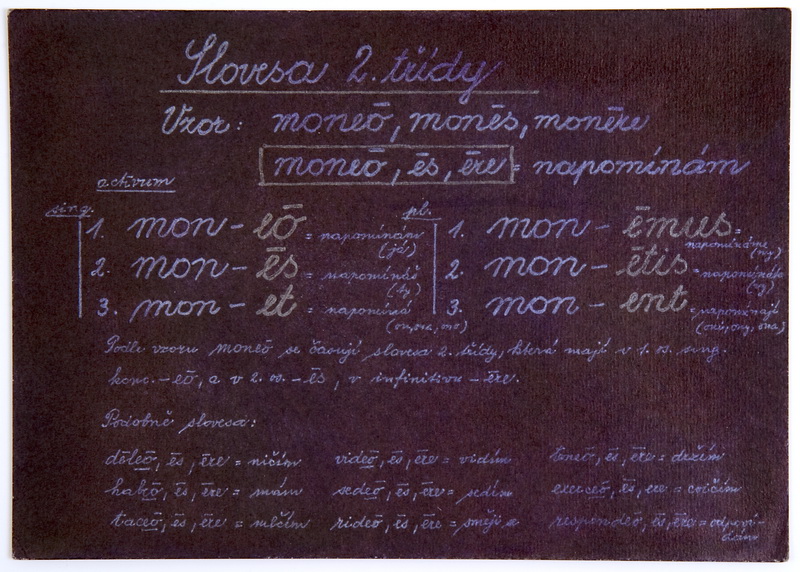 Slovesa 2. třídy
Vzor: moneō, monēs, monēre
moneō, ēs, ēre = napomínám
activum
sing. pl.
1. mon - eō = napomínám (já) 1. mon - ēmus = napomínáme (my)
2. mon - ēs = napomínáš (ty) 2. mon - ētis = napomínáte (vy)
3. mon - et = napomíná (on, ona, ono) 3. mon - ent = napomínají (oni, ony, ona)
Podle vzoru moneō se časují slovesa 2. třídy, která mají v 1. os. sing.
konc. - eō, a v 2. os. - ēs, v infinitivu - ēre.
Podobně slovesa:
dēleō, ēs, ēre = ničím videō, ēs, ēre = vidím teneō, ēs, ēre = držím
habeō, ēs, ēre = mám sedeō, ēs, ēre = sedím exerceō, ēs, ēre = cvičím
taceō, ēs, ēre = mlčím rideō, ēs, ēre = směji se respondeō, ēs, ēre = odpoví-
dám